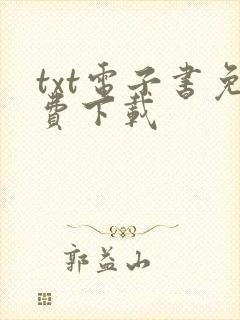 txt电子書免
費下載
郭益山